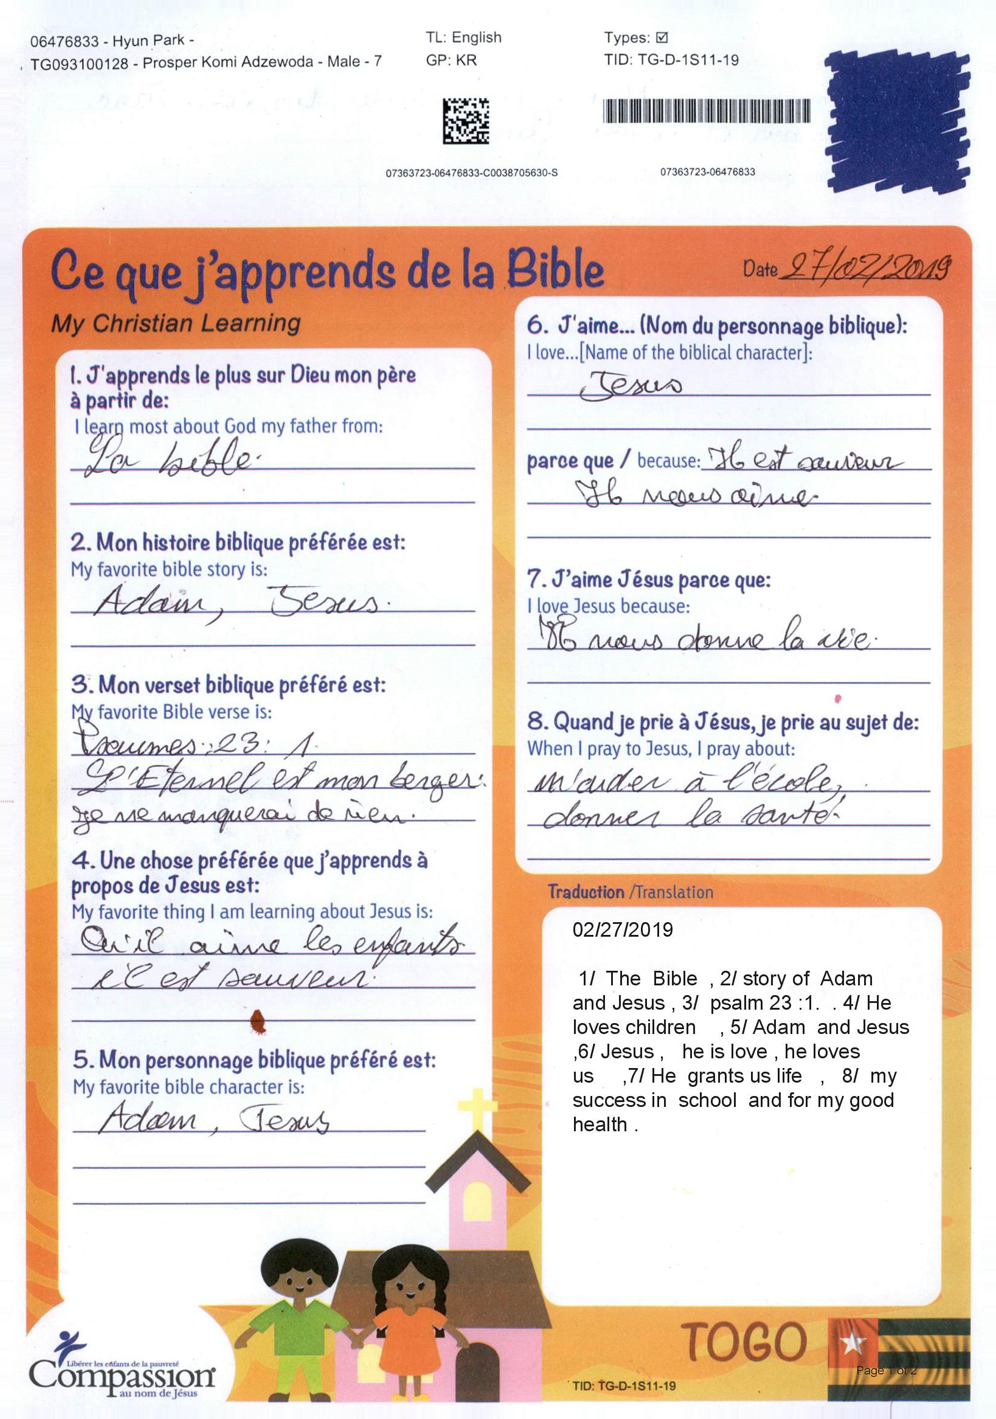 06476833 - Hyun Park -
TG093100128 - Prosper Komi Adzewoda - Male - 7
TL: English
GP: KR
Types: ☑
TID: TG-D-1S11-19
07363723-06476833-C0038705630-S
07363723-06476833
Ce que j'apprends de la Bible
My Christian Learning
Date 27/02/2019
1. J'apprends le plus sur Dieu mon père
à partir de:
I learn most about God my father from:
La bible.
2. Mon histoire biblique préférée est:
My favorite bible story is:
Adam, Jesus.
3. Mon verset biblique préféré est:
My favorite Bible verse is:
Psaumes:23: 1.
L'Eternel est mon berger:
je ne manquerai de rien.
4. Une chose préférée que j'apprends à
propos de Jesus est:
My favorite thing I am learning about Jesus is:
Qu'il aime les enfants
il est sauveur.
5. Mon personnage biblique préféré est:
My favorite bible character is:
Adam, Jesus
6. J'aime... (Nom du personnage biblique):
I love...[Name of the biblical character]:
Jesus
parce que / because: Il est sauveur
Il nous aime.
7. J'aime Jésus parce que:
I love Jesus because:
Il nous donne la vie.
8. Quand je prie à Jésus, je prie au sujet de:
When I pray to Jesus, I pray about:
m'aider à l'école,
donner la santé.
Traduction /Translation
02/27/2019
1/ The Bible , 2/ story of Adam
and Jesus , 3/ psalm 23 :1. . 4/ He
loves children , 5/ Adam and Jesus
,6/ Jesus , he is love , he loves
us ,7/ He grants us life , 8/ my
success in school and for my good
health .
Libérer les enfants de la pauvreté
Compassion
au nom de Jésus
TOGO
Page 1 of 2
TID: TG-D-1S11-19